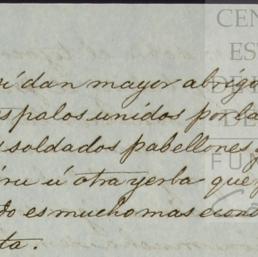 CEN
ES
DE
FUN
dan mayor abrigo
palos unidos por la
soldados pabellones
ú otra yerba que
es mucho mas econo
ta.